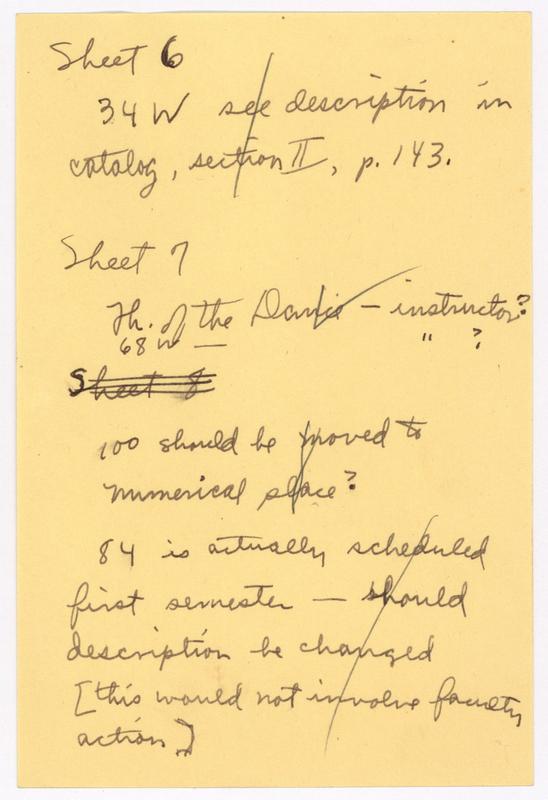 Sheet 6
34 W see description in
catalog, section II, p. 143.
Sheet 7
Th. of the Dance – instructor?
68 W — " ?
Sheet 8
100 should be moved to
numerical place?
84 is actually scheduled
first semester — should
description be changed
[this would not involve faculty
action]